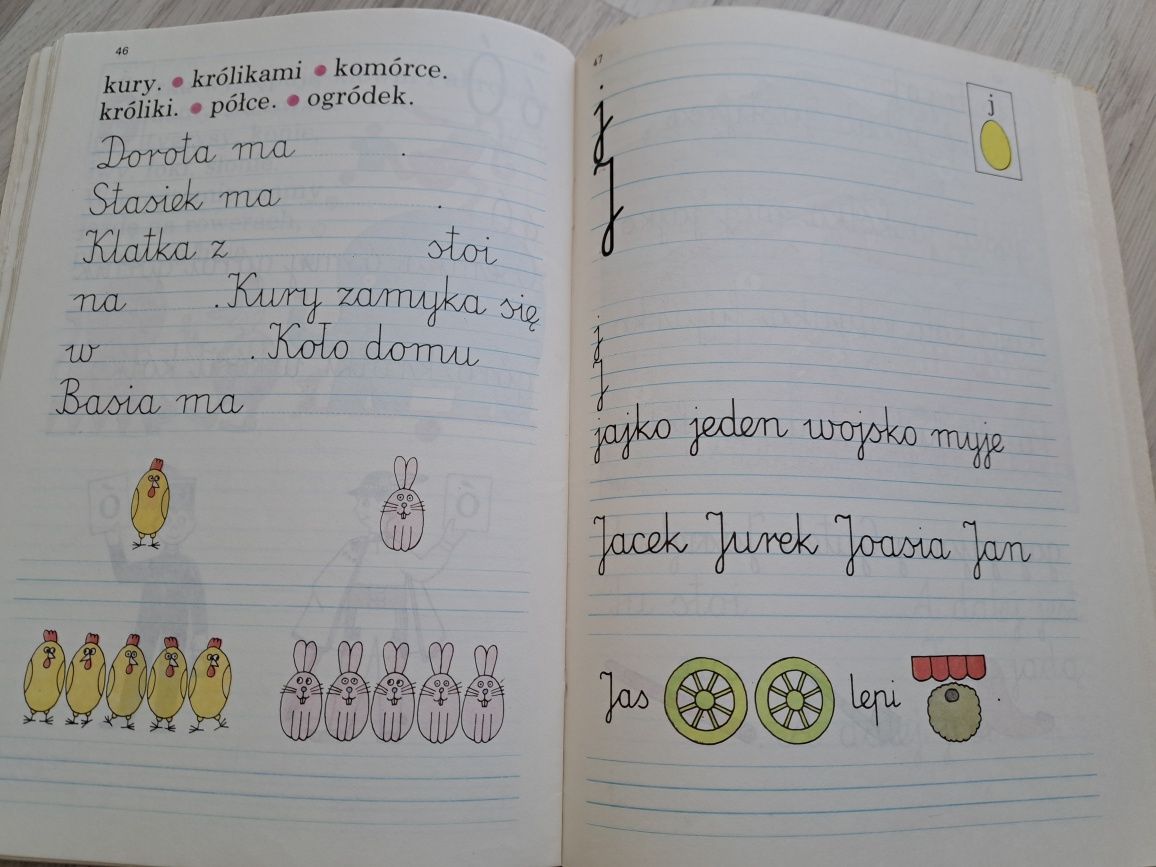 46
kury. • królikami • komórce.
króliki. • półce. • ogródek.
Dorota ma .
Stasiek ma .
Klatka z stoi
na . Kury zamyka się
w . Koło domu
Basia ma
47
j
j
J
j
J
jajko jeden wojsko myje
Jacek Jurek Joasia Jan
Jas lepi .